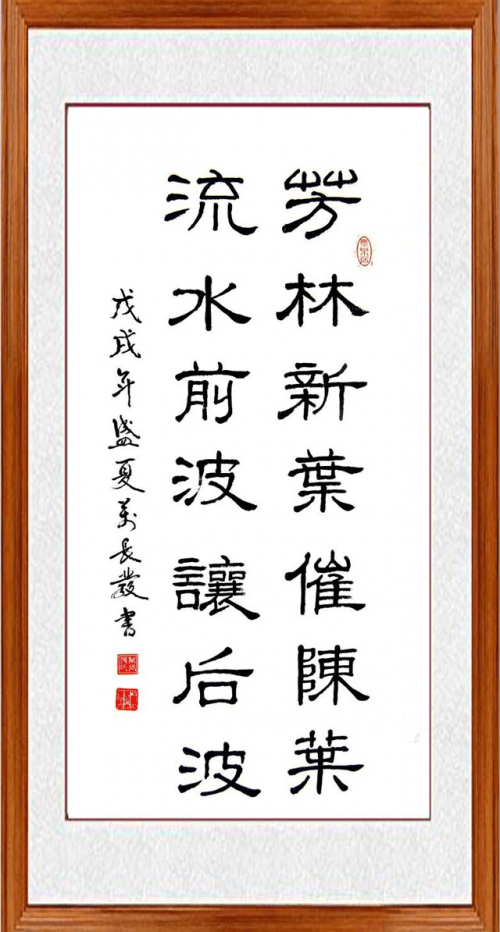 芳林新葉催陳葉
流水前波讓后波
戊戌年盛夏萬长發書